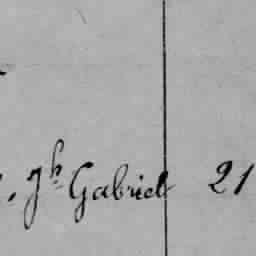 , Jh Gabriel 21